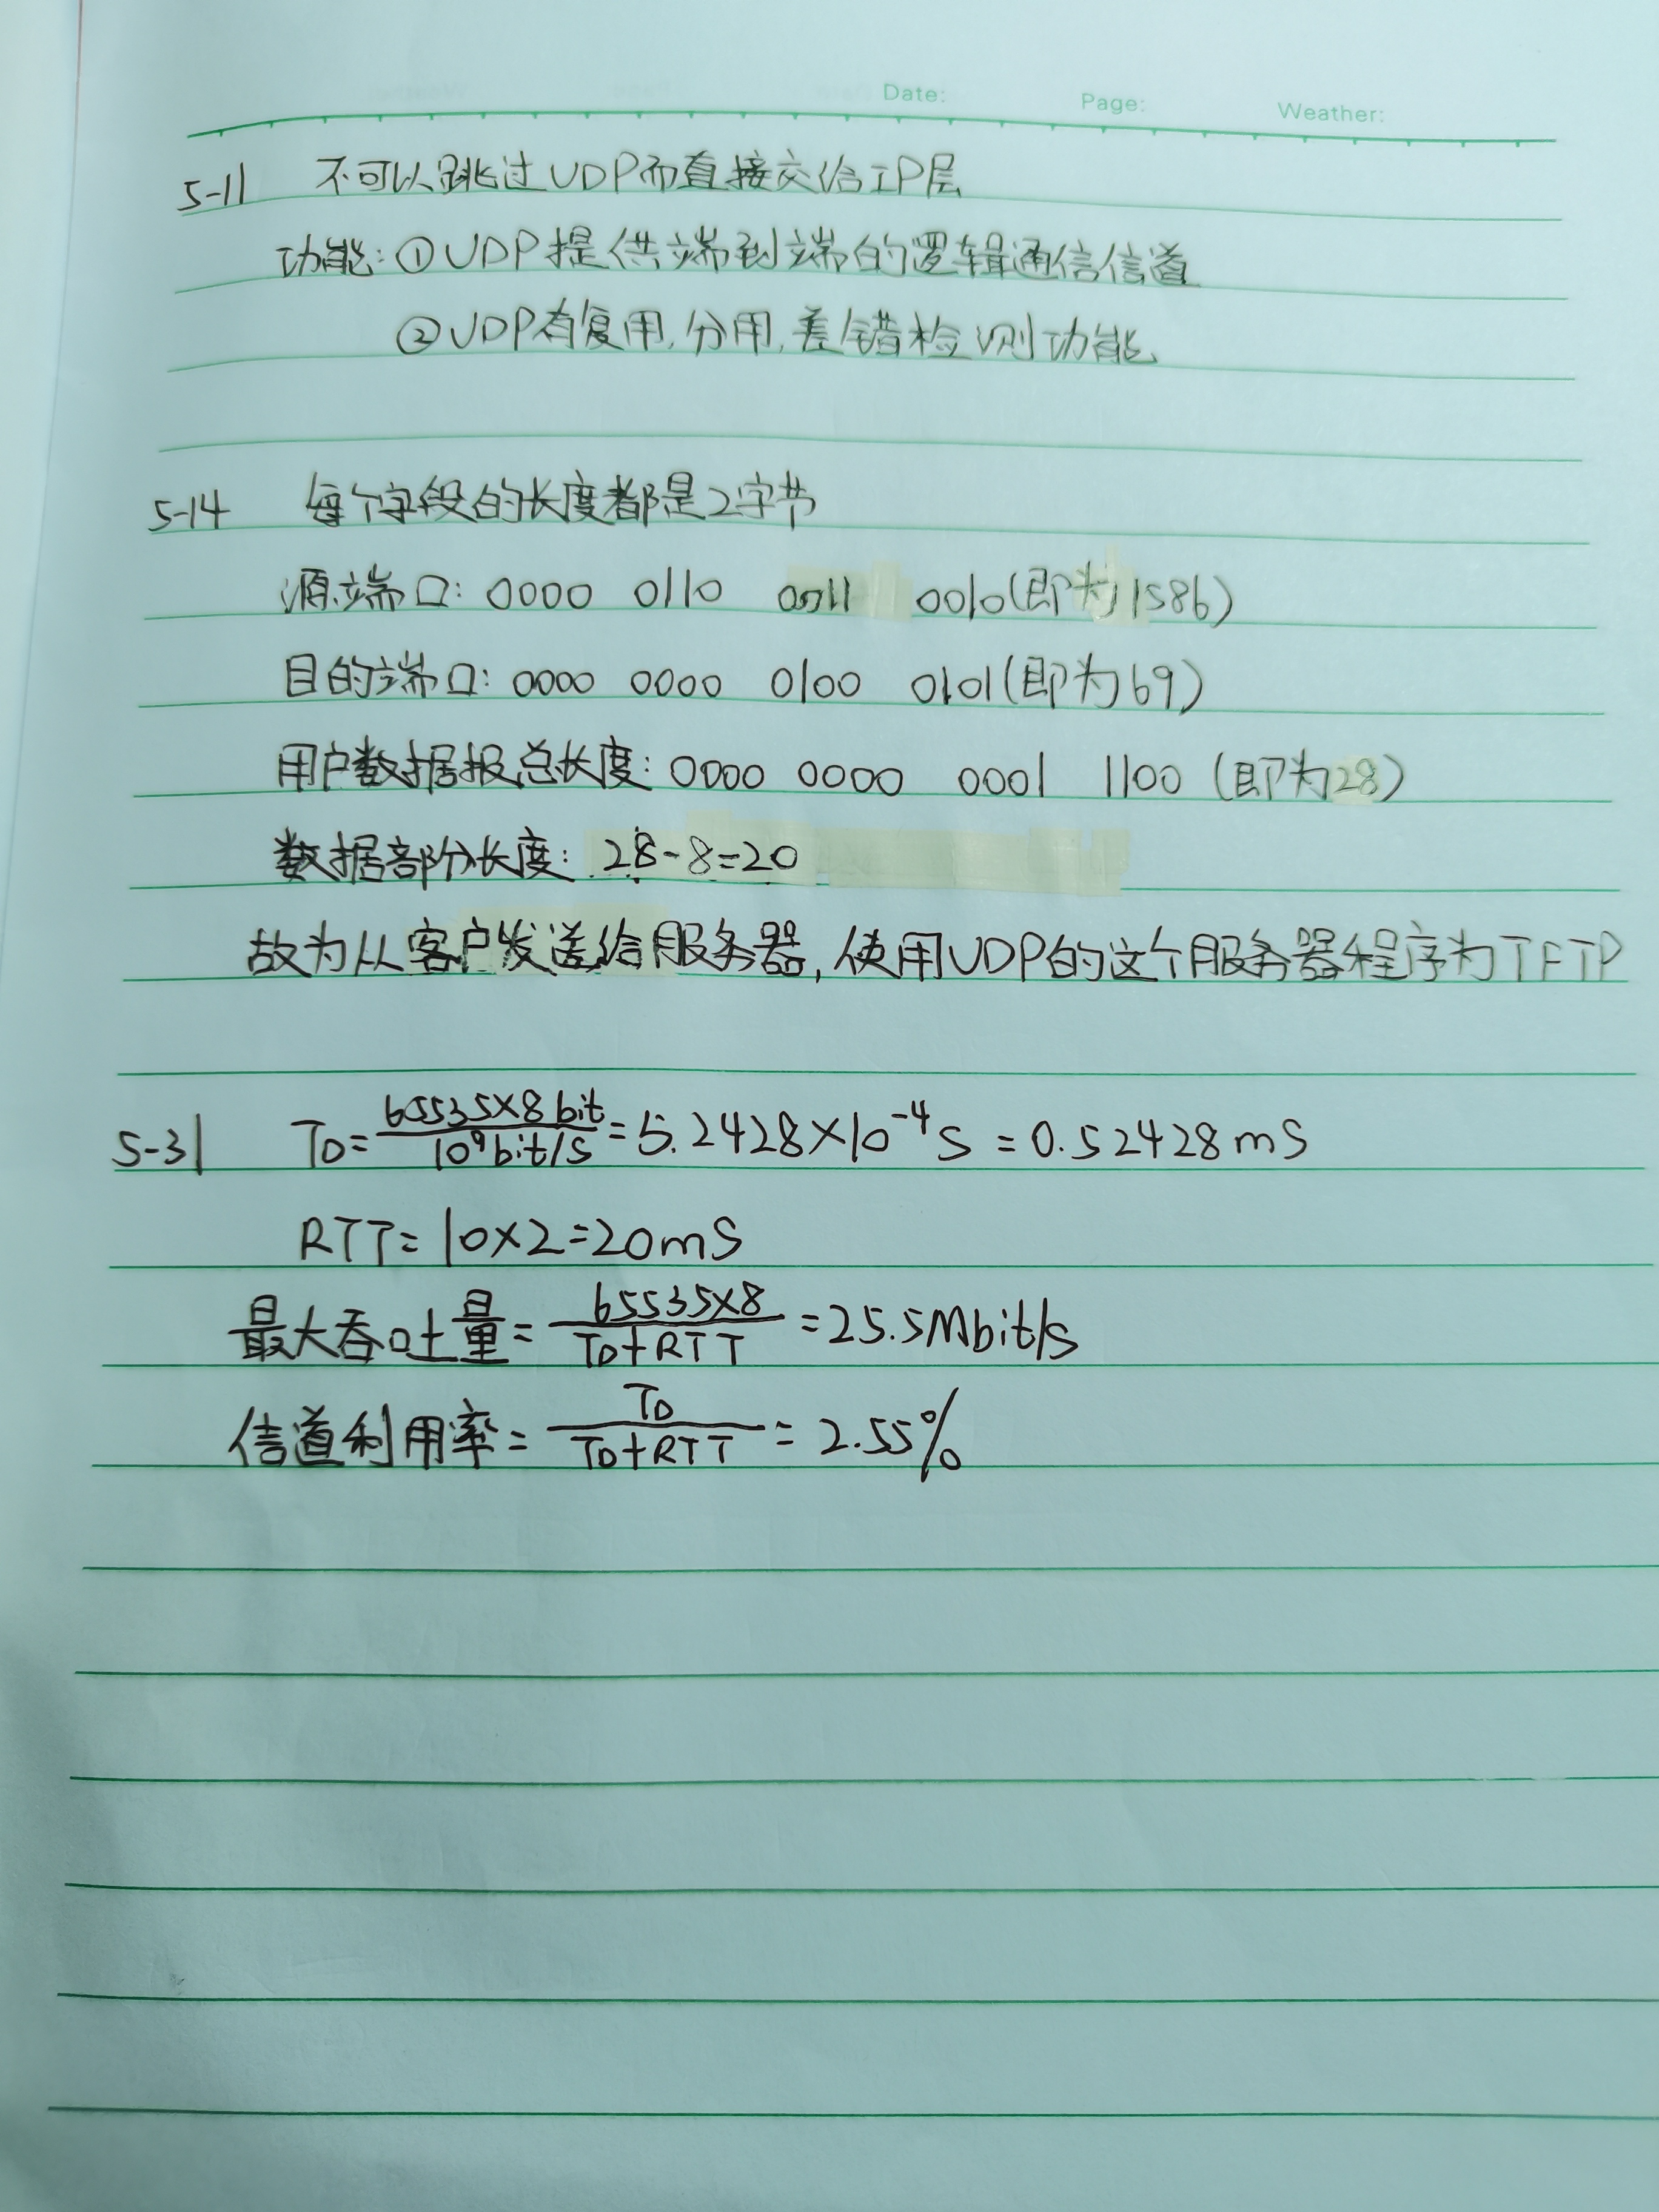 Date: Page: Weather:
5-11 不可以跳过UDP而直接交给IP层
功能:①UDP提供端到端的逻辑通信信道
②UDP有复用,分用,差错检测功能
5-14 每个字段的长度都是2字节
源端口: 0000 0110 0011 0010(即为1586)
目的端口: 0000 0000 0100 0101(即为69)
用户数据报总长度: 0000 0000 0001 1100 (即为28)
数据部分长度: 28-8=20
故为从客户发送给服务器,使用UDP的这个服务器程序为TFTP
5-31 TD=65535×8bit/10⁹bit/s=5.2428×10⁻⁴s=0.52428mS
RTT=10×2=20mS
最大吞吐量=65535×8/TD+RTT=25.5Mbit/s
信道利用率=TD/TD+RTT=2.55%